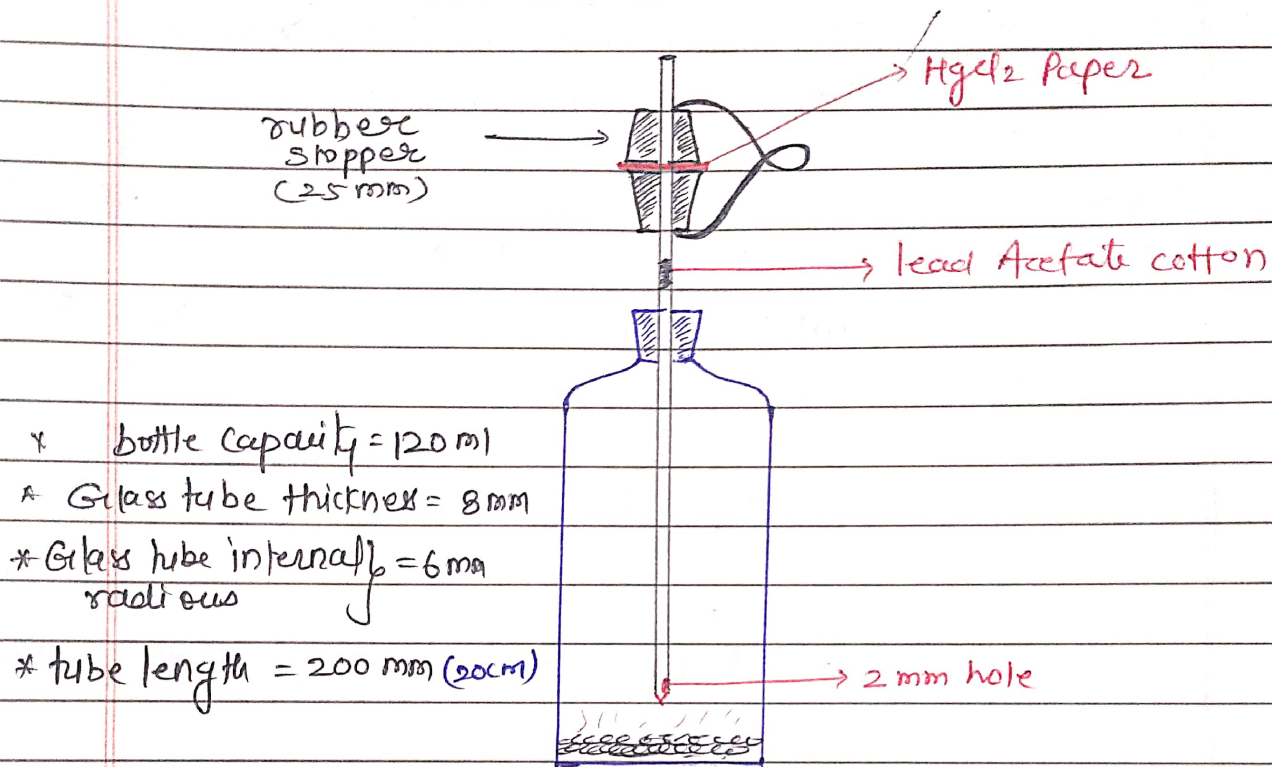 HgCl2 Paper
rubber
stopper
(25 mm)
lead Acetate cotton
* bottle capacity = 120 ml
* Glass tube thickness = 8 mm
* Glass tube internally = 6 mm
radious
* tube length = 200 mm (20cm)
2 mm hole